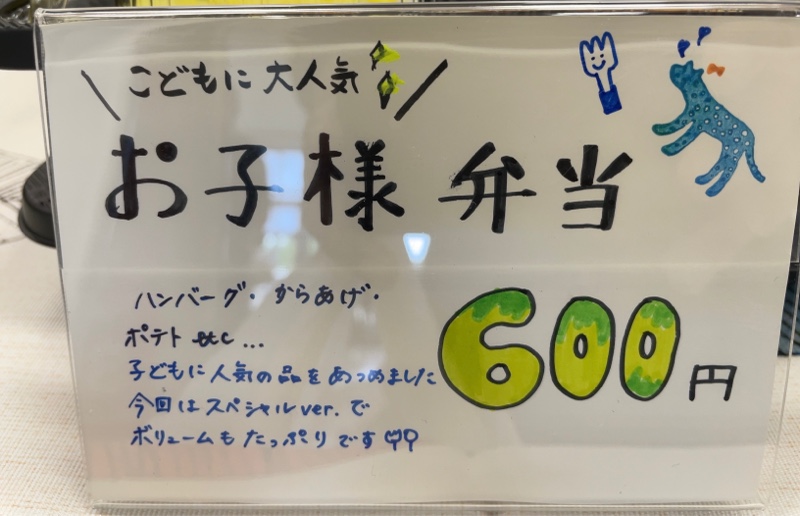 こどもに大人気
お子様 弁当
ハンバーグ・からあげ・
ポテト etc...
子どもに人気の品をあつめました
今回はスペシャルver.で
ボリュームもたっぷりです
600円